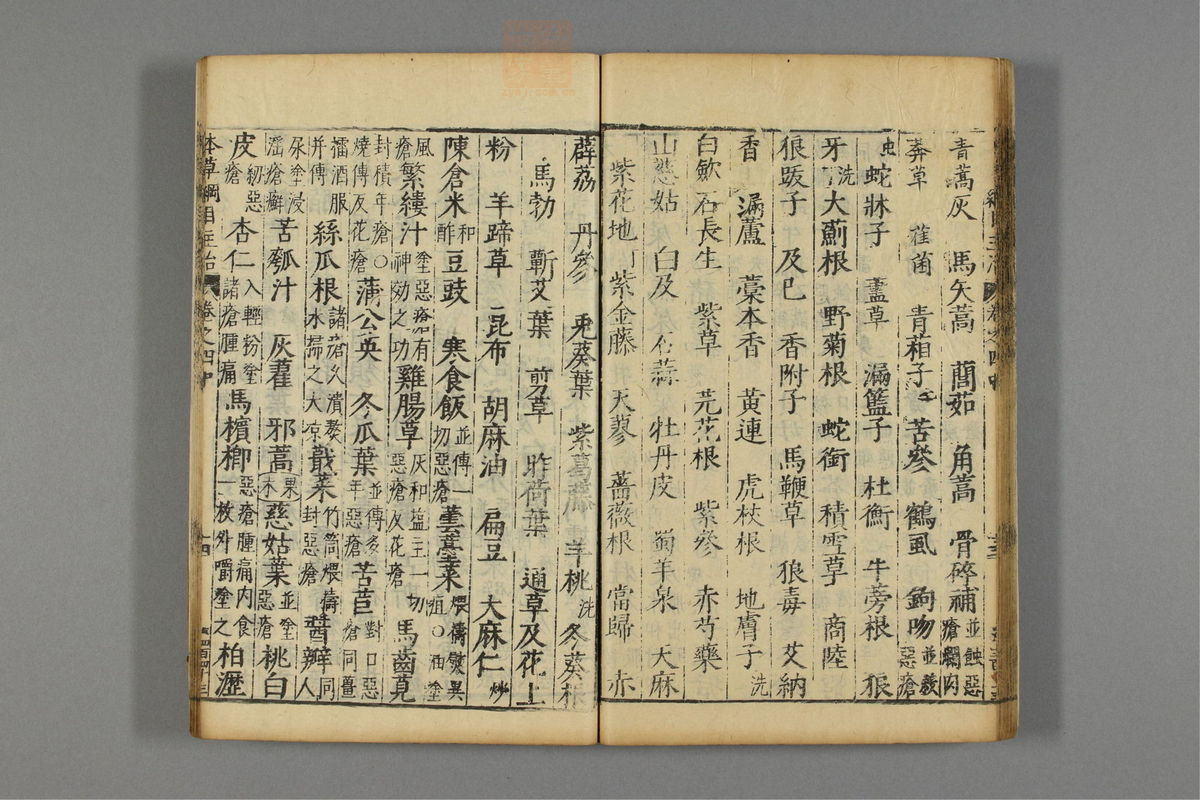 青蒿灰 馬矢蒿 䕡茹 角蒿 骨碎補並蝕惡瘡爛肉
莽草 雚菌 青葙子 苦參 鶴虱 鉤吻並殺惡瘡
虫 蛇牀子 藎草 漏籃子 杜衡 牛蒡根 狼
牙洗 大薊根 野菊根 蛇銜 積雪草 商陸
狼跋子 及已 香附子 馬鞭草 狼毒 艾納
香 漏蘆 藁本香 黃連 虎杖根 地膚子洗
白歛 石長生 紫草 芫花根 紫參 赤芍藥
山慈姑 白及 石蒜 牡丹皮 蜀羊泉 天麻
紫花地丁 紫金藤 天蓼 薔薇根 當歸 赤
薜荔 丹參 兎葵葉 紫葛藤 羊桃洗 冬葵根
馬勃 蘄艾葉 剪草 昨荷葉 通草及花上
粉 羊蹄草 昆布 胡麻油 扁豆 大麻仁炒
陳倉米和酢 豆豉 寒食飯並傅一切惡瘡 蕓薹菜煨擣熨異疽○油塗
風瘡 繁縷汁塗惡瘡有神効之功 雞腸草灰和塩主一切惡瘡反花瘡 馬齒莧
封積年瘡○燒傅反花瘡 蒲公英 冬瓜葉並傅多年惡瘡 苦苣對口惡瘡同薑
擂酒服并傅 絲瓜根諸瘡久潰熬水掃之大凉 蕺菜竹筒煨擣封惡瘡 醬瓣同人
尿塗浸淫瘡癬 苦瓠汁 灰藋 邪蒿 果木 慈姑葉並塗惡瘡 桃白
皮紉惡瘡 杏仁入輕粉塗諸瘡腫痛 馬檳榔惡瘡腫痛内食一枚外嚼塗之 柏瀝
本草綱目主治 卷之四中 十四